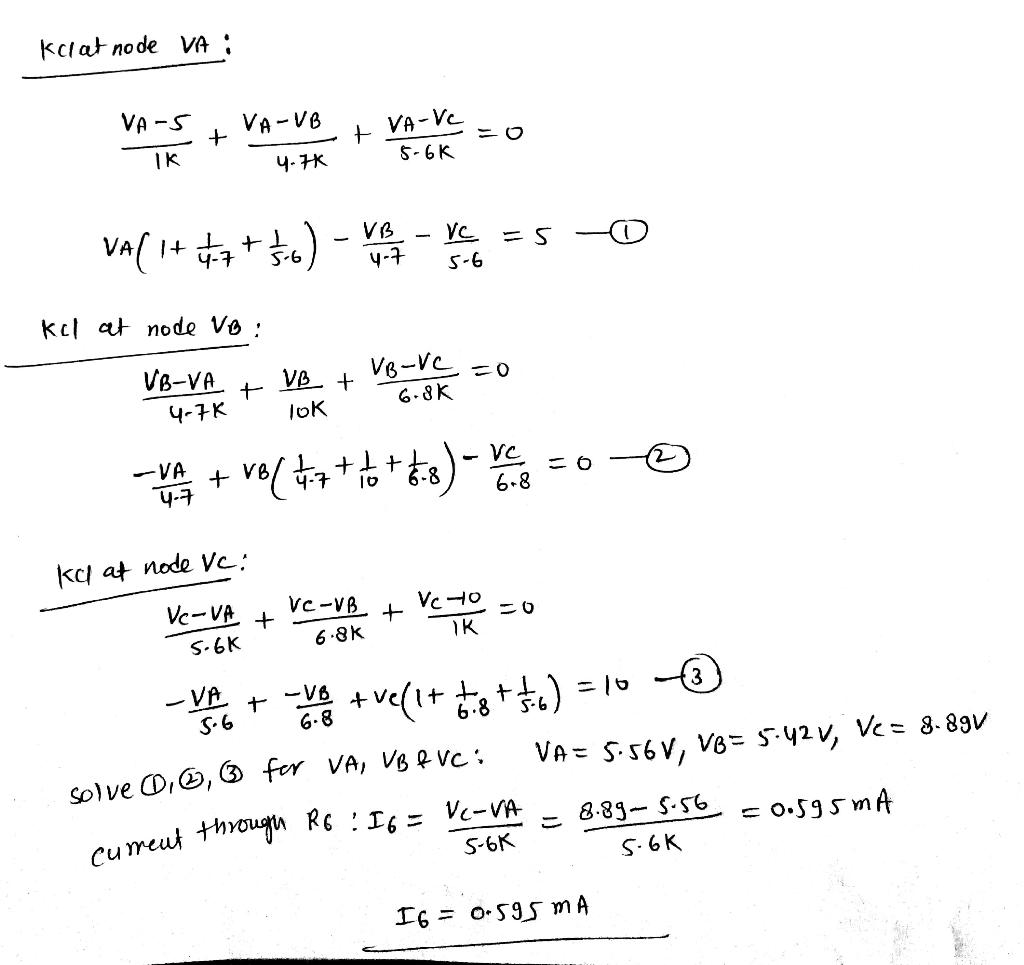 Kcl at node VA :
VA-5/1K + VA-VB/4.7K + VA-VC/5.6K = 0
VA(1+ 1/4.7 + 1/5.6) - VB/4.7 - VC/5.6 = 5 —①
Kcl at node VB :
VB-VA/4.7K + VB/10K + VB-VC/6.8K = 0
-VA/4.7 + VB(1/4.7 + 1/10 + 1/6.8) - VC/6.8 = 0 —②
Kcl at node VC :
VC-VA/5.6K + VC-VB/6.8K + VC-10/1K = 0
-VA/5.6 + -VB/6.8 + VC(1+ 1/6.8 + 1/5.6) = 10 —③
solve ①,②,③ for VA, VB & VC : VA = 5.56V, VB = 5.42V, VC = 8.89V
current through R6 : I6 = VC-VA/5.6K = 8.89-5.56/5.6K = 0.595 mA
I6 = 0.595 mA